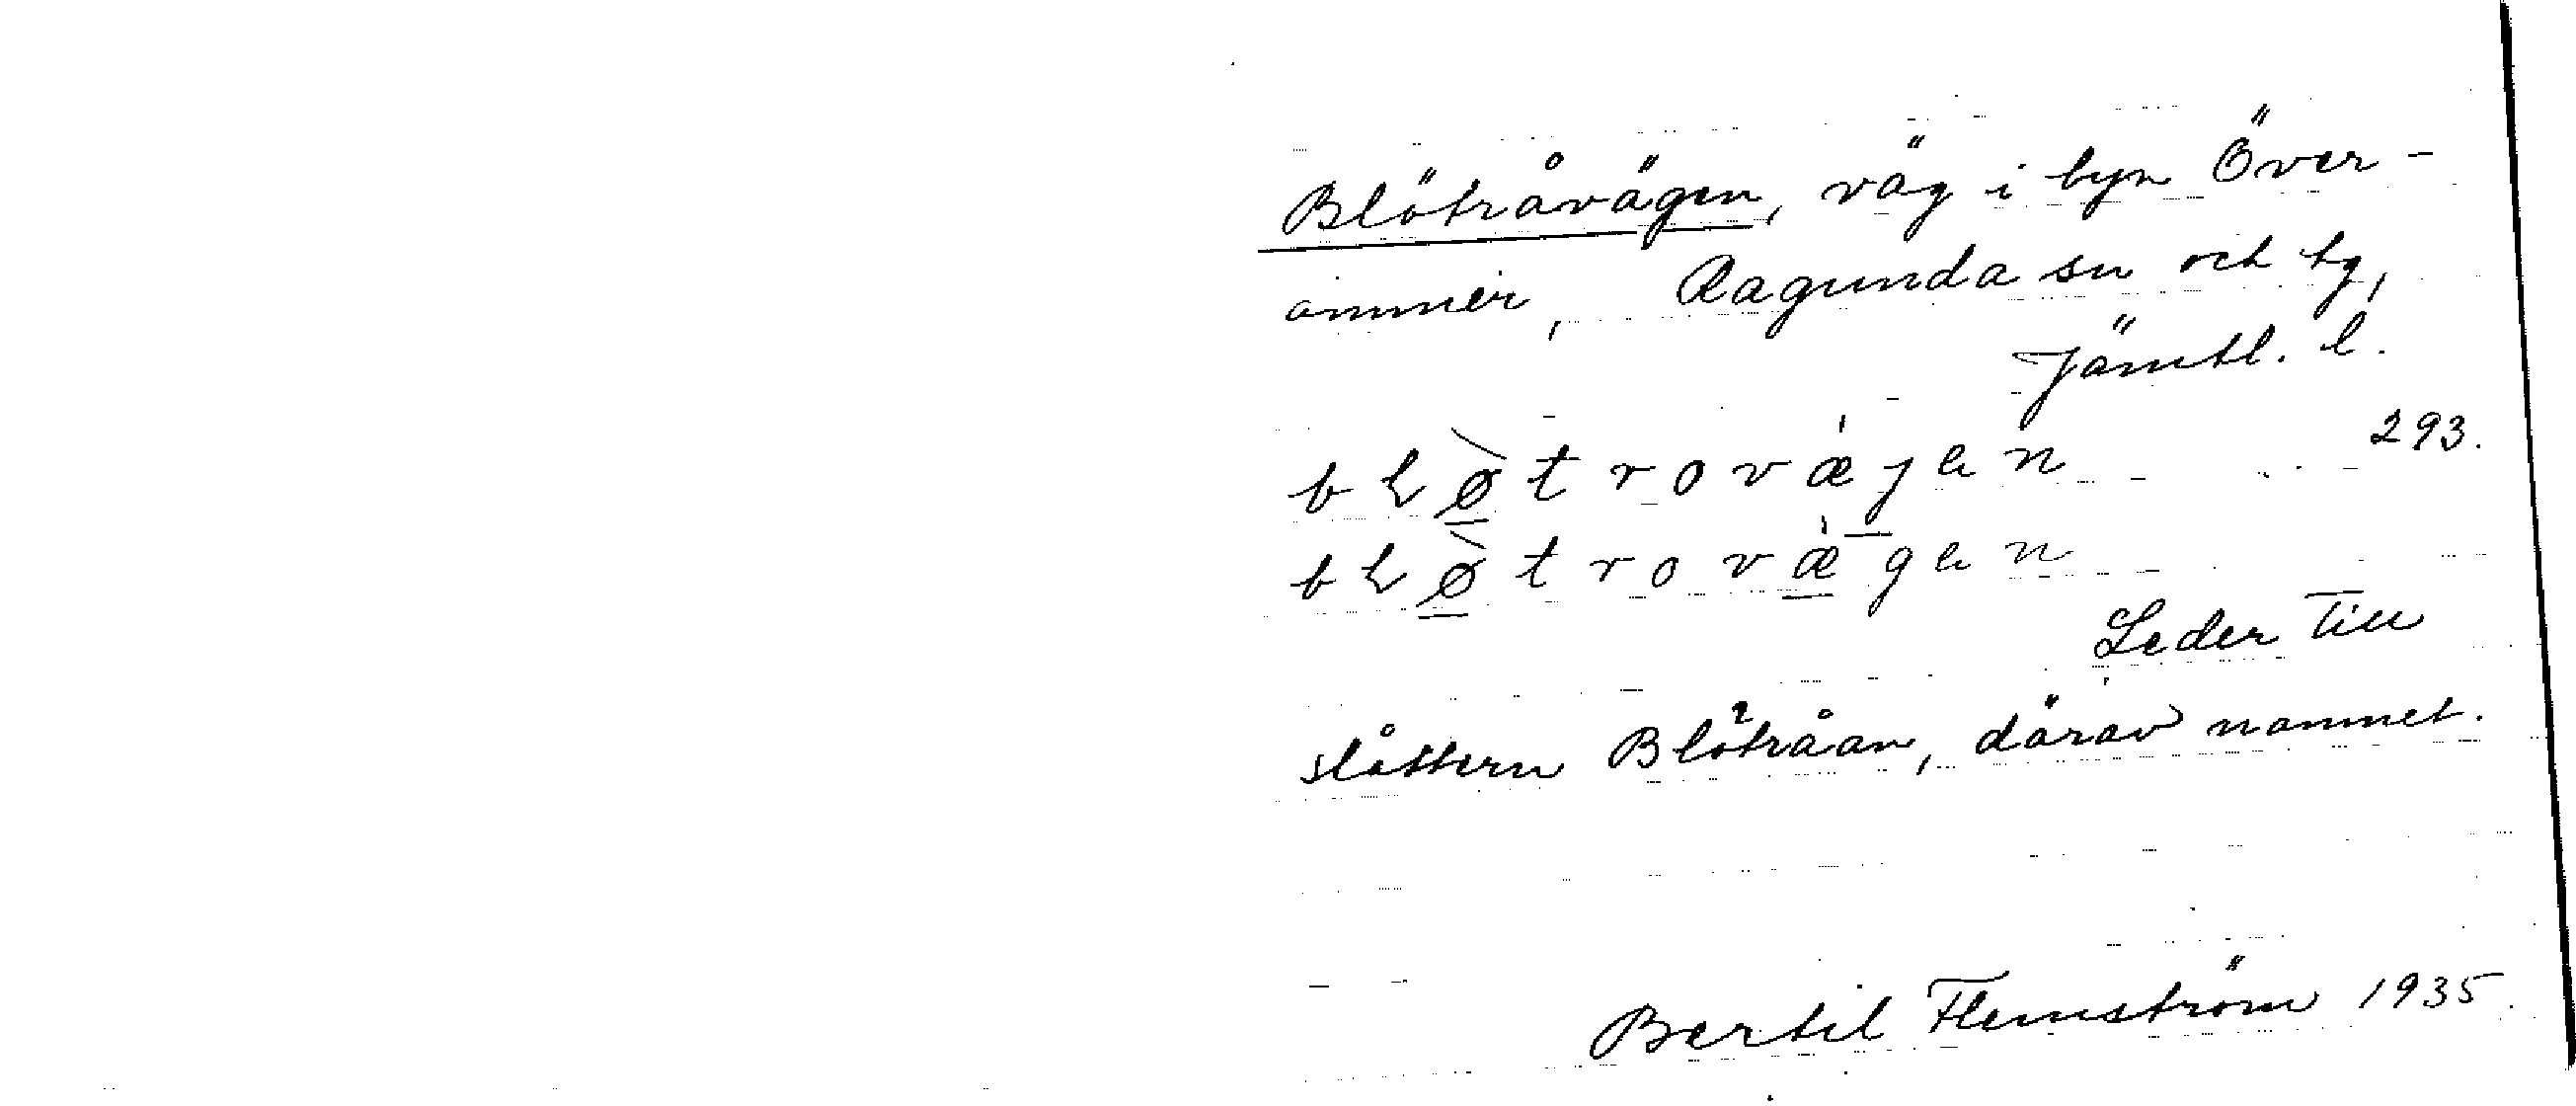 Blötråvägen, väg i byn Över-
ammer, Ragunda sn och tg,
Jämtl. l.
293.
bḷø̀trovæ̀jen
bḷø̀trovæ̀gen
Leder till
slåttern Blötråan, därav namnet.
Bertil Flemström 1935.